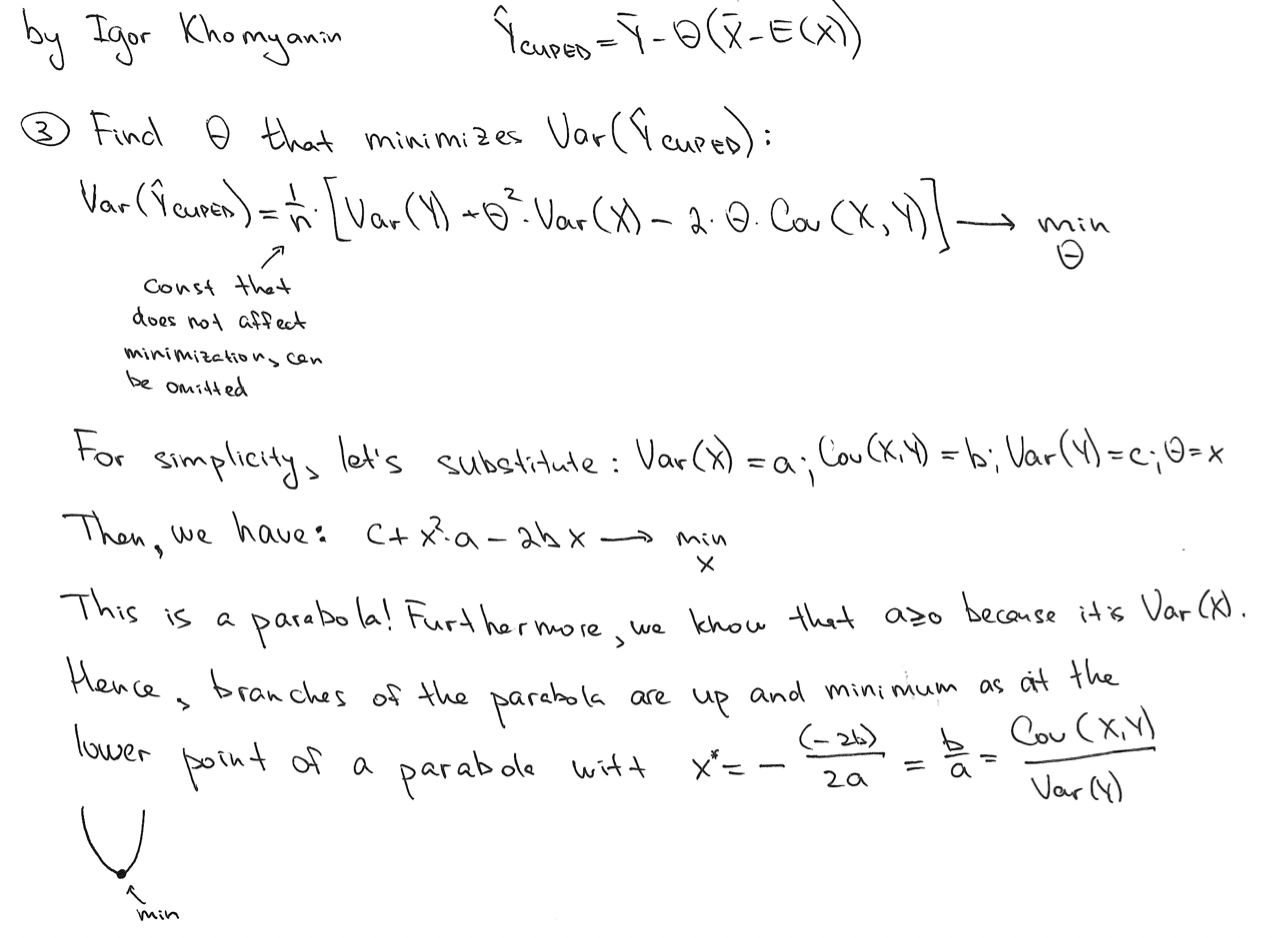 by Igor Khomyanin
Ŷ_CUPED = Ȳ - Θ(X̄ - E(X))
③ Find Θ that minimizes Var(Ŷ_CUPED):
Var(Ŷ_CUPED) = 1/n · [Var(Y) + Θ² · Var(X) - 2 · Θ · Cov(X, Y)] → min Θ
const that
does not affect
minimization, can
be omitted
For simplicity, let's substitute: Var(X) = a; Cov(X,Y) = b; Var(Y) = c; Θ = x
Then, we have: c + x² · a - 2bx → min x
This is a parabola! Furthermore, we know that a≥0 because it's Var(X).
Hence, branches of the parabola are up and minimum as at the
lower point of a parabola with x* = - (-2b)/2a = b/a = Cov(X,Y)/Var(Y)
min